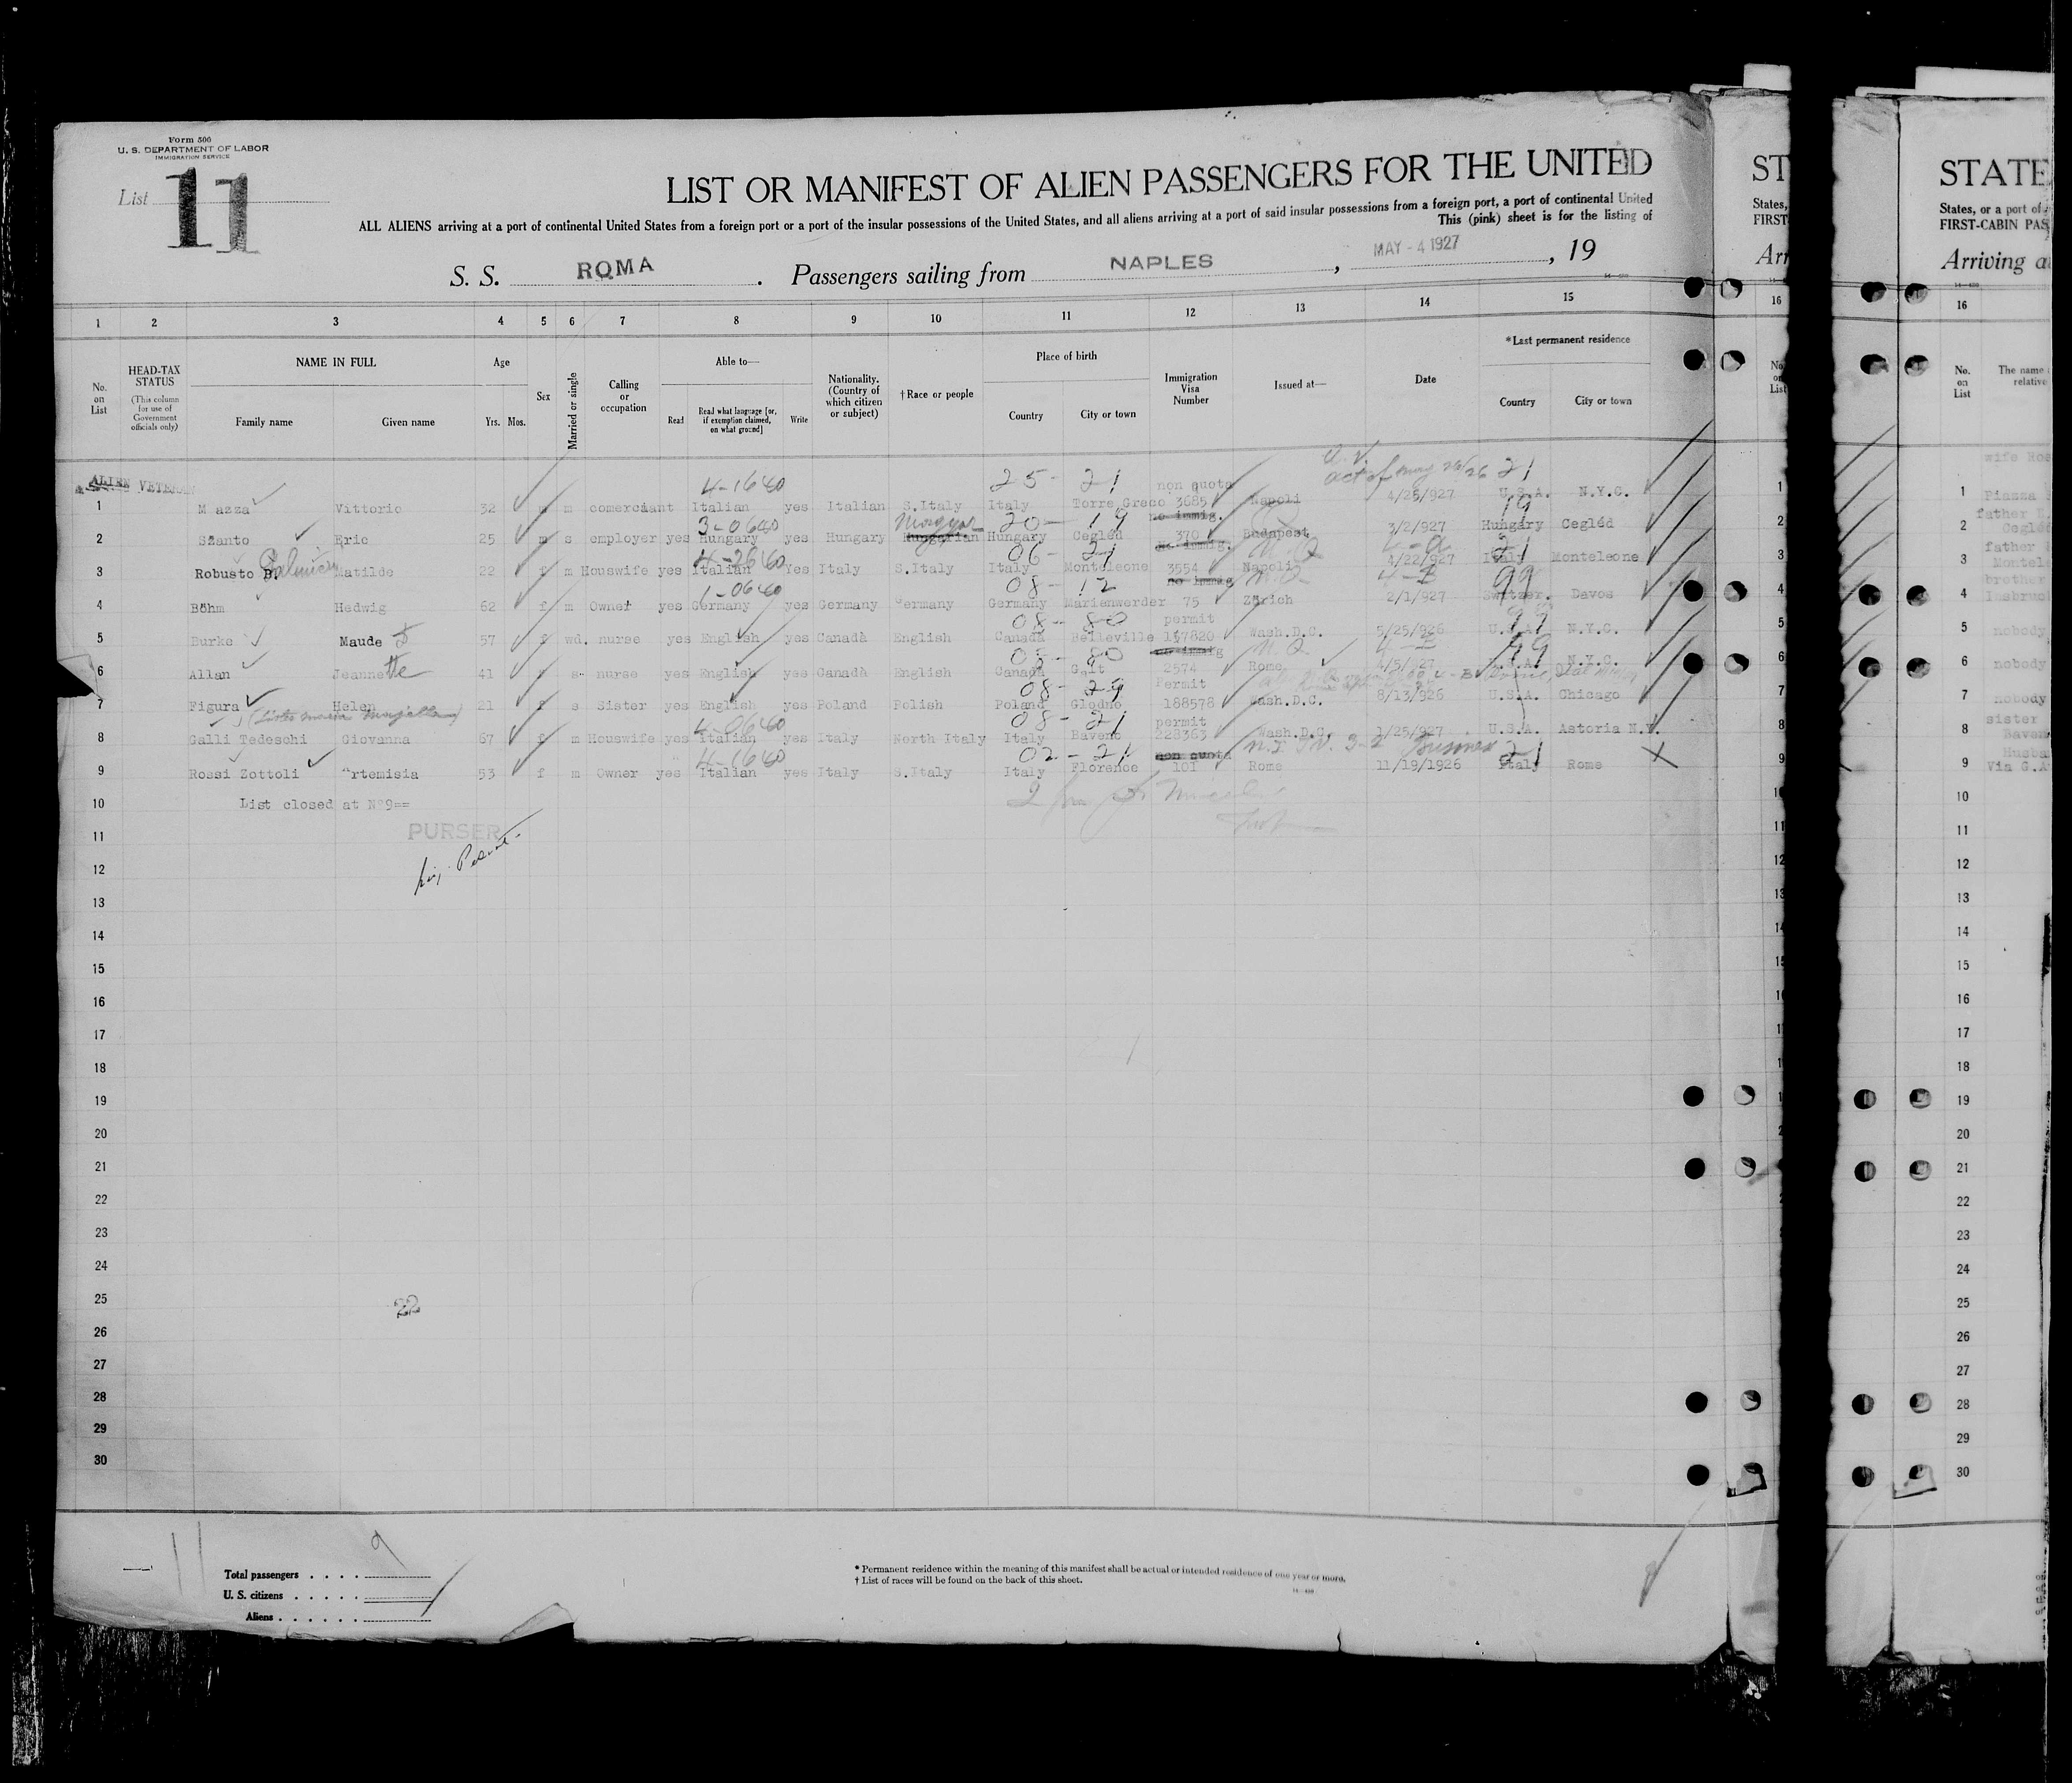 Form 500
U. S. DEPARTMENT OF LABOR
IMMIGRATION SERVICE
List 11
LIST OR MANIFEST OF ALIEN PASSENGERS FOR THE UNITED
ALL ALIENS arriving at a port of continental United States from a foreign port or a port of the insular possessions of the United States, and all aliens arriving at a port of said insular possessions from a foreign port, a port of continental United
This (pink) sheet is for the listing of
S. S. ROMA. Passengers sailing from NAPLES, MAY - 4 1927, 19
1 2 3 4 5 6 7 8 9 10 11 12 13 14 15
No. on List
HEAD-TAX STATUS
(This column for use of Government officials only)
NAME IN FULL
Family name Given name
Age
Yrs. Mos.
Sex
Married or single
Calling or occupation
Able to—
Read Read what language [or, if exemption claimed, on what ground] Write
Nationality. (Country of which citizen or subject)
† Race or people
Place of birth
Country City or town
Immigration Visa Number
Issued at—
Date
*Last permanent residence
Country City or town
ALIEN VETERAN
4-1640 25- 21 non quota act of May 26/26 21
1 Mazza Vittorio 32 m m comerciant Italian yes Italian S.Italy Italy Torre Greco 3685 Napoli 4/25/927 U.S.A. N.Y.C.
3-0640 Magyar 20- 19 no immig. 19
2 Szanto Eric 25 m s employer yes Hungary yes Hungary Hungarian Hungary Cegléd 370 Budapest 3/2/927 Hungary Cegléd
Palmieri 4-2660 06- 21 no immig. N.Q. 21
3 Robusto B. Matilde 22 f m Houswife yes Italian Yes Italy S.Italy Italy Monteleone 3554 Napoli 4/22/927 Italy Monteleone
1-0640 08- 12 no immig N.Q. 99
4 Böhm Hedwig 62 f m Owner yes Germany yes Germany Germany Germany Marienwerder 75 Zürich 2/1/927 Switzer. Davos
08- 80 permit 99
5 Burke Maude 57 f wd. nurse yes English yes Canadà English Canada Belleville 147820 Wash.D.C. 5/25/926 U.S.A. N.Y.C.
08- 80 no immig N.Q. 99
6 Allan Jeannette 41 f s nurse yes English yes Canadà English Canada Galt 2574 Rome 4/5/927 U.S.A. N.Y.C.
08- 29 Permit
7 Figura Helen 21 f s Sister yes English yes Poland Polish Poland Glodno 188578 Wash.D.C. 8/13/926 U.S.A. Chicago
4-0640 08- 21 permit
8 Galli Tedeschi Giovanna 67 f m Houswife yes Italian yes Italy North Italy Italy Baveno 228363 Wash.D.C. 1/25/927 U.S.A. Astoria N.Y.
4-1640 02- 21 non quota 3-2 21
9 Rossi Zottoli Artemisia 53 f m Owner yes Italian yes Italy S.Italy Italy Florence 101 Rome 11/19/1926 Italy Rome
10 List closed at N°9==
11 PURSER
12
13
14
15
16
17
18
19
20
21
22
23
24
25 22
26
27
28
29
30
11
9
Total passengers
U. S. citizens
Aliens
* Permanent residence within the meaning of this manifest shall be actual or intended residence of one year or more.
† List of races will be found on the back of this sheet.
ST
States,
FIRST
Arr
16
No. on List
STATE
States, or a port of
FIRST-CABIN PAS
Arriving a
16
No. on List
The name
relative
wife
1 Piazza
father
2 Cegléd
father
3 Montele
brother
4 Insbruc
5 nobody
6 nobody
7 nobody
sister
8 Baven
Husba
9 Via G.A
10
11
12
13
14
15
16
17
18
19
20
21
22
23
24
25
26
27
28
29
30